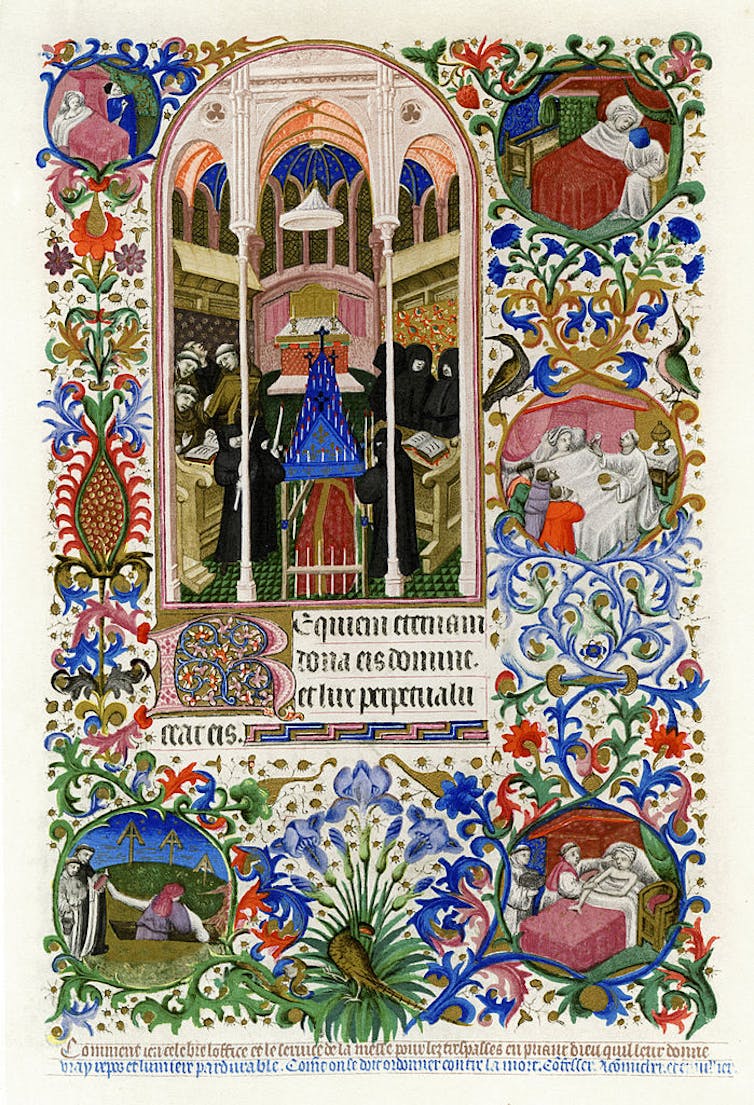 Requiem eternam
dona eis domine.
et lux perpetua lu
ceat eis.
Comment len celebre loffice et le service de la messe pour lez trespasses en priant dieu quil leur donne
vray repos et lumiere pardurable. Come on se doit ordonner contre la mort. Cōfesser.